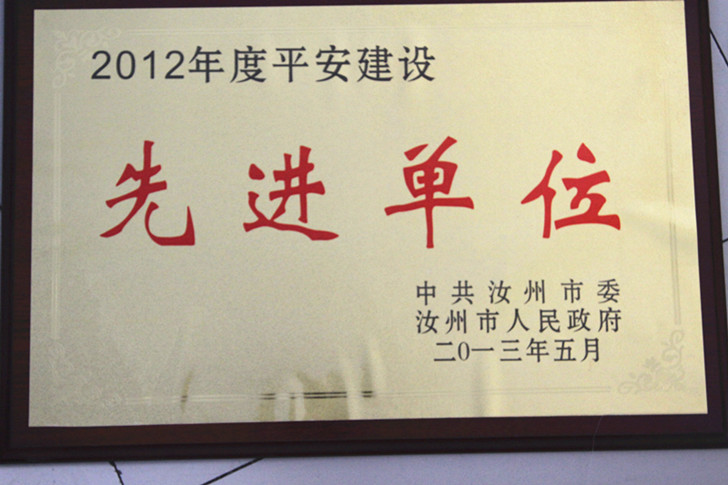 2012年度平安建设
先进单位
中共汝州市委
汝州市人民政府
二0一三年五月